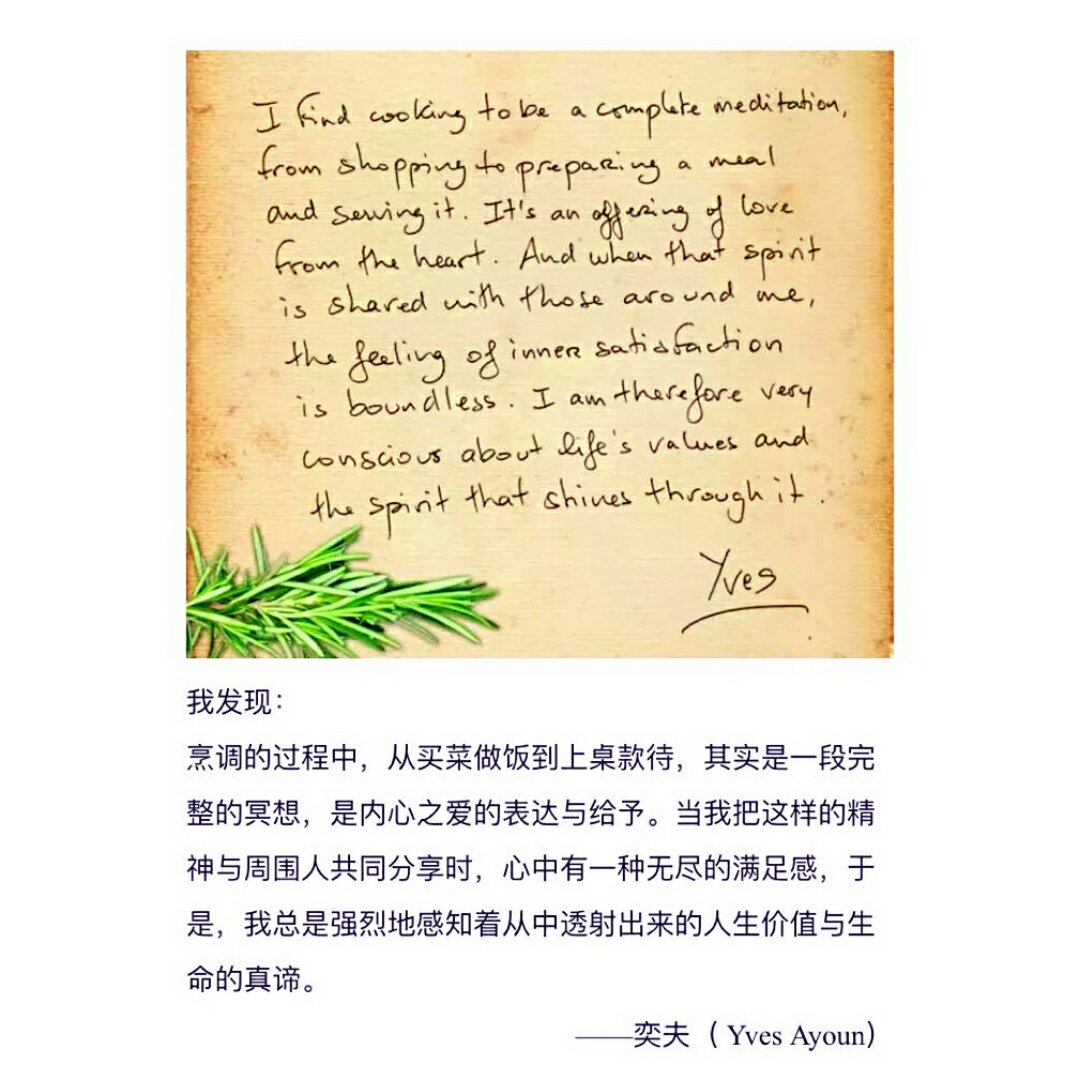 I find cooking to be a complete meditation,
from shopping to preparing a meal
and serving it. It's an offering of love
from the heart. And when that spirit
is shared with those around me,
the feeling of inner satisfaction
is boundless. I am therefore very
conscious about life's values and
the spirit that shines through it.
Yves
我发现：
烹调的过程中，从买菜做饭到上桌款待，其实是一段完
整的冥想，是内心之爱的表达与给予。当我把这样的精
神与周围人共同分享时，心中有一种无尽的满足感，于
是，我总是强烈地感知着从中透射出来的人生价值与生
命的真谛。
——奕夫（ Yves Ayoun）